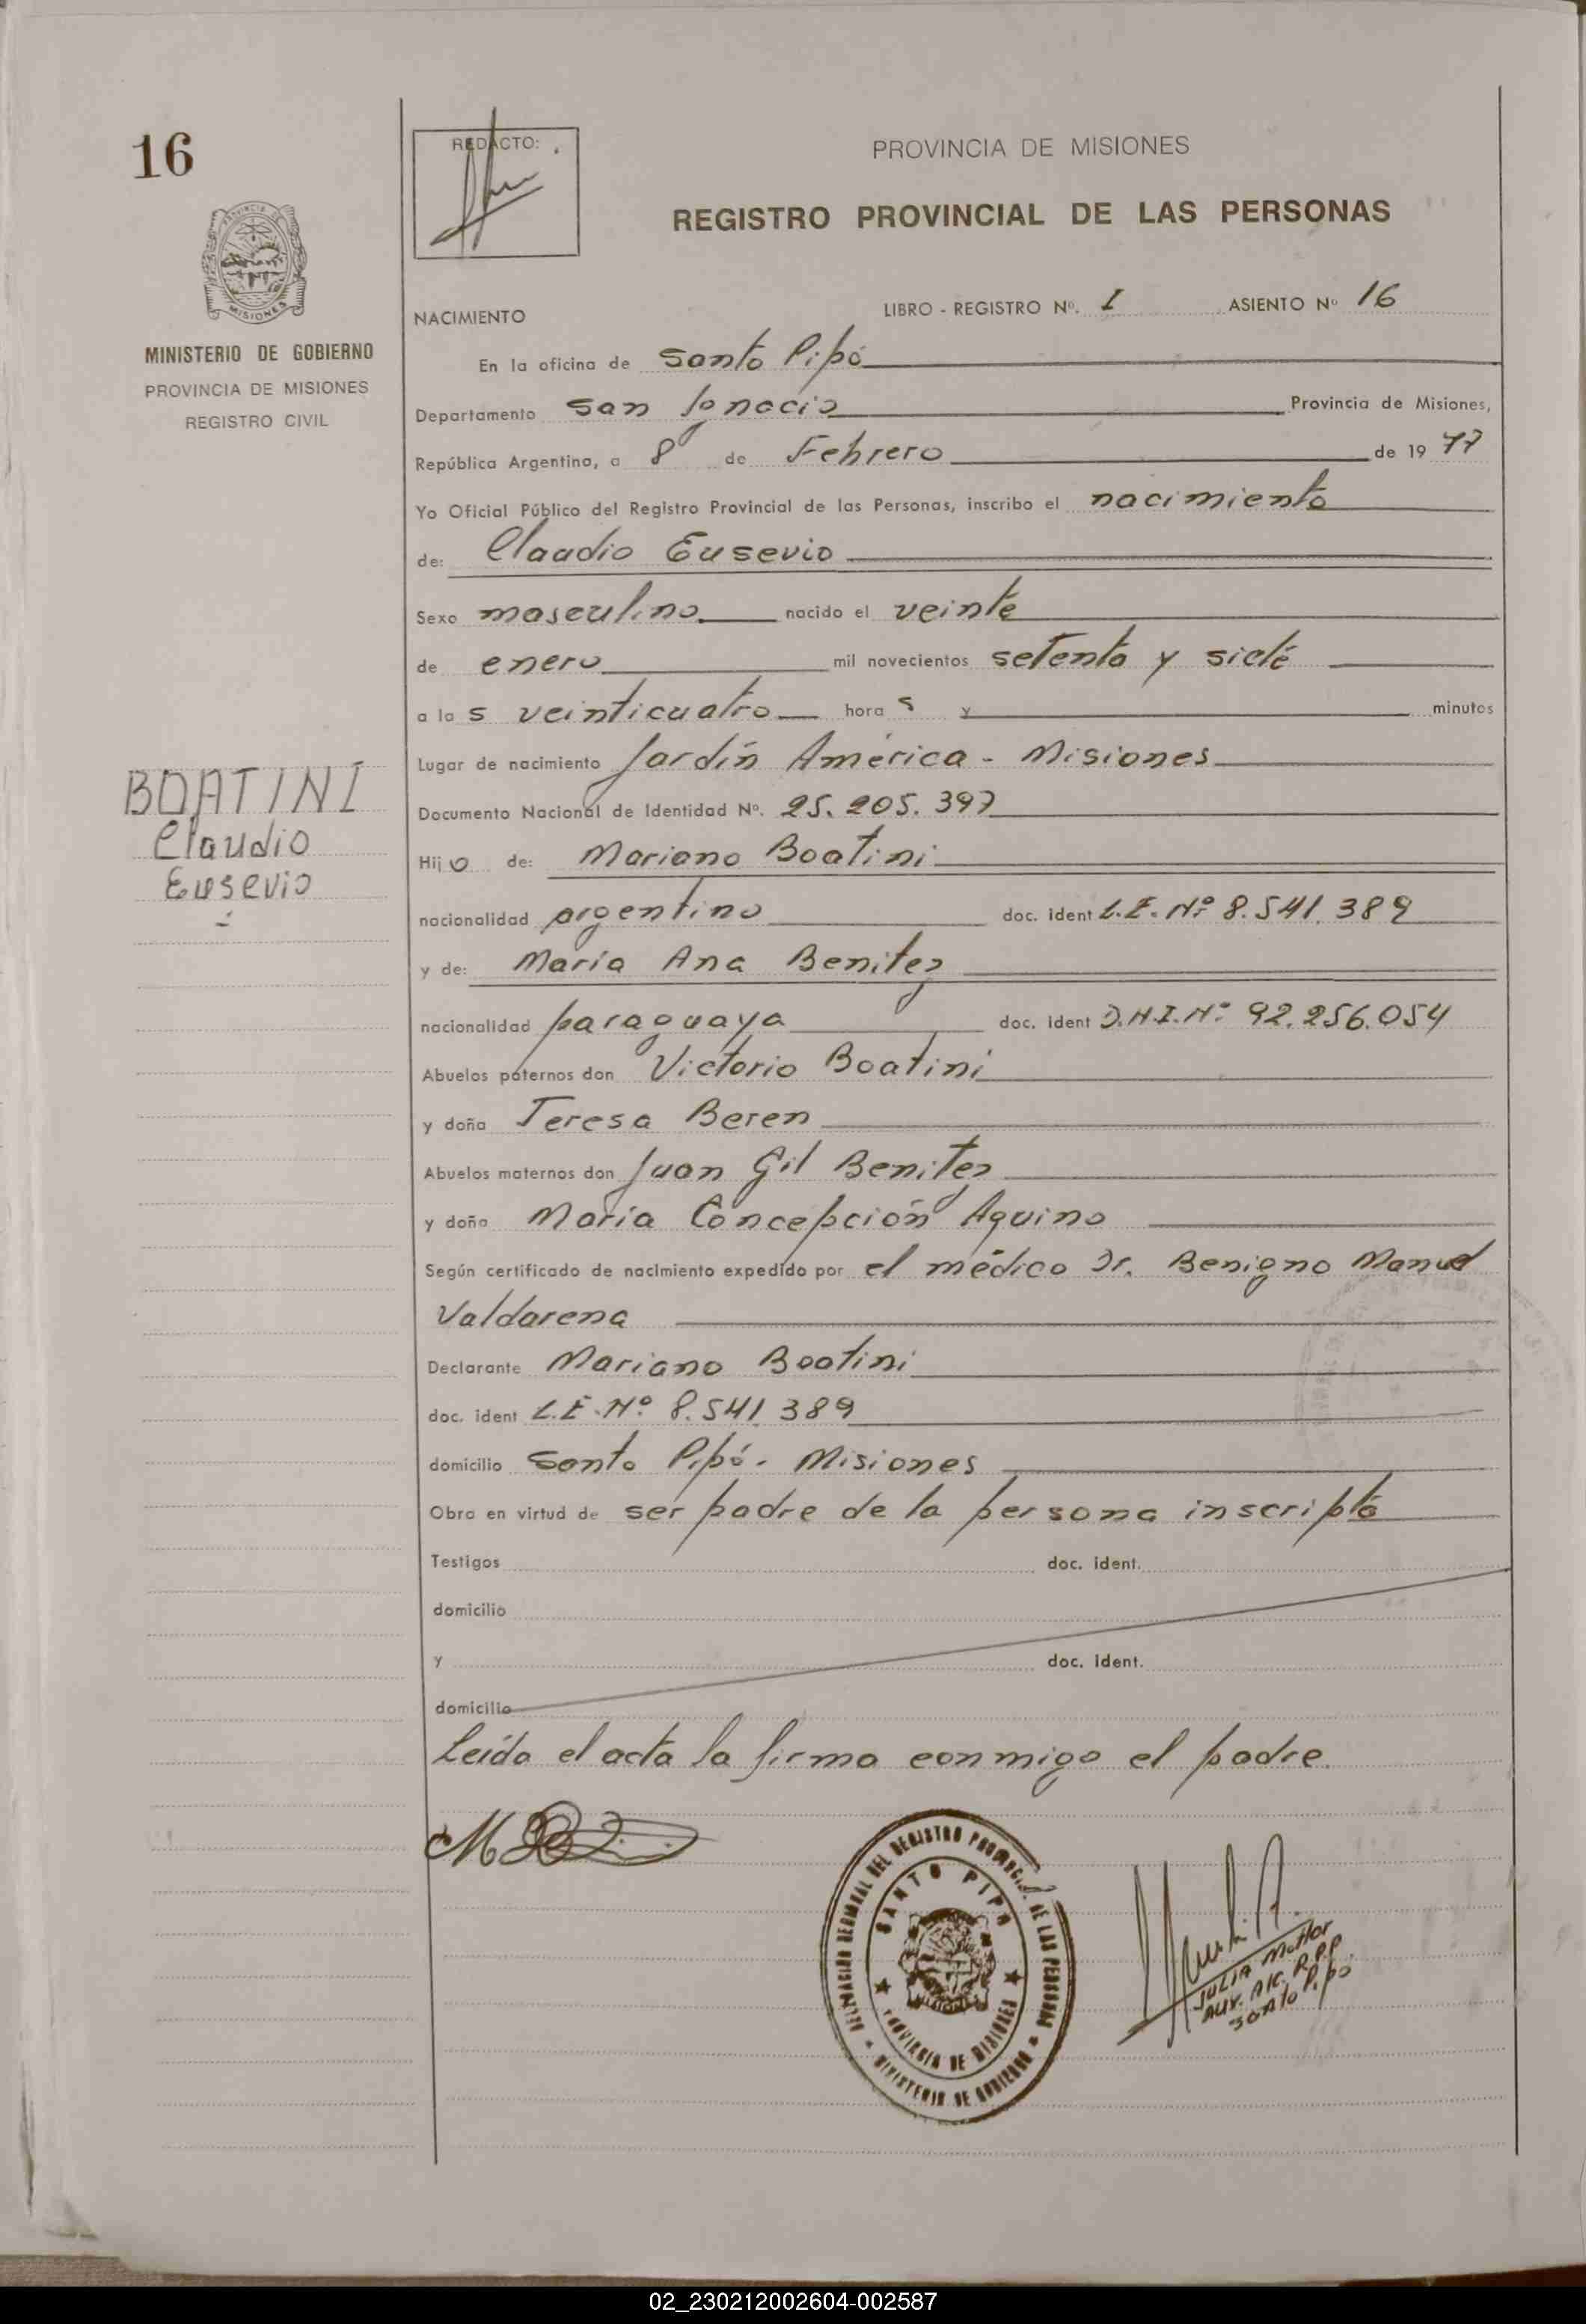 16
PROVINCIA DE
MISIONES
MINISTERIO DE GOBIERNO
PROVINCIA DE MISIONES
REGISTRO CIVIL
BOATINI
Claudio
Eusevio
REDACTO:
PROVINCIA DE MISIONES
REGISTRO PROVINCIAL DE LAS PERSONAS
NACIMIENTO
LIBRO - REGISTRO Nº. I ASIENTO Nº 16
En la oficina de Santo Pipó
Departamento San Ignacio Provincia de Misiones,
República Argentina, a 8 de Febrero de 19 77
Yo Oficial Público del Registro Provincial de las Personas, inscribo el nacimiento
de: Claudio Eusevio
Sexo masculino nacido el veinte
de enero mil novecientos setenta y siete
a la s veinticuatro hora s y minutos
Lugar de nacimiento Jardín América - Misiones
Documento Nacional de Identidad Nº. 25.205.397
Hij o de: Mariano Boatini
nacionalidad argentino doc. ident L.E. Nº 8.541.389
y de: María Ana Benitez
nacionalidad paraguaya doc. ident D.N.I. Nº 92.256.054
Abuelos paternos don Victorio Boatini
y doña Teresa Beren
Abuelos maternos don Juan Gil Benitez
y doña María Concepción Aquino
Según certificado de nacimiento expedido por el médico Dr. Benigno Manuel
Valdarena
Declarante Mariano Boatini
doc. ident L.E. Nº 8.541.389
domicilio Santo Pipó - Misiones
Obra en virtud de ser padre de la persona inscripta
Testigos doc. ident.
domicilio
y doc. ident.
domicilio
Leída el acta la firma conmigo el padre.
DELEGACION SECCIONAL DEL REGISTRO PROVINCIAL DE LAS PERSONAS
SANTO PIPO
MISIONES
PROVINCIA DE MISIONES
MINISTERIO DE GOBIERNO
JULIA
AUX. R.P.P.
SANTO Pipó
02_230212002604-002587